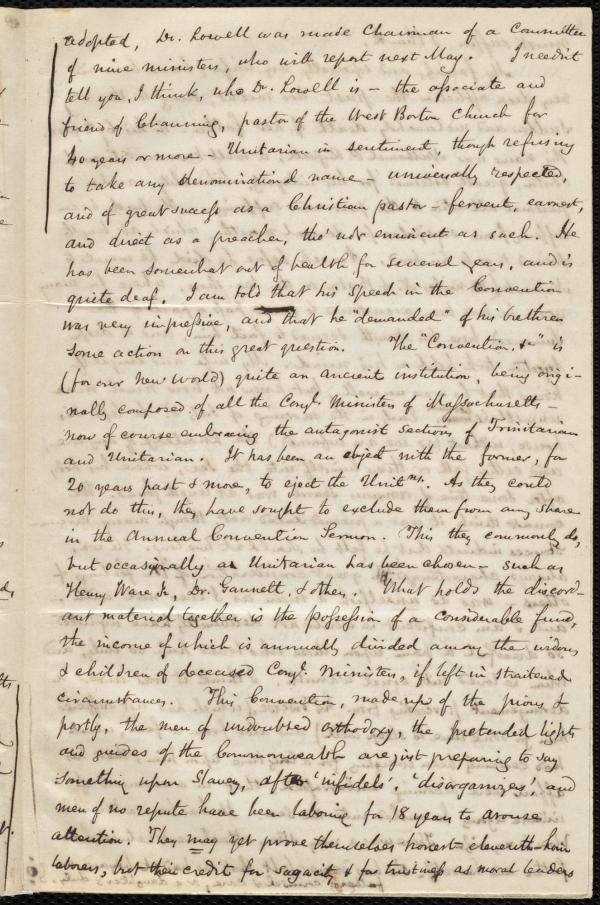 adopted, Dr. Lowell was made Chairman of a Committee
of nine ministers, who will report next May. I needn't
tell you, I think, who Dr. Lowell is – the associate and
friend of Channing, pastor of the West Boston Church for
40 years or more – Unitarian in sentiment, though refusing
to take any denominational name – universally respected,
and of great success as a Christian pastor – fervent, earnest,
and direct as a preacher, tho' not eminent as such. He
has been somewhat out of health for several years, and is
quite deaf. I am told that his speech in the Convention
was very impressive, and that he "demanded" of his brethren
some action on this great question. The "Convention, &c" is
(for our New World) quite an ancient institution, being origi-
nally composed of all the Congl. Ministers of Massachusetts –
now of course embracing the antagonist sections of Trinitarian
and Unitarian. It has been an object with the former, for
20 years past & more, to eject the Unitns. As they could
not do this, they have sought to exclude them from any share
in the Annual Convention Sermon. This they commonly do,
but occasionally a Unitarian has been chosen – such as
Henry Ware Jr., Dr. Gannett, & others. What holds the discord-
ant material together is the possession of a considerable fund,
the income of which is annually divided among the widows
& children of deceased Congl. Ministers, if left in straitened
circumstances. This Convention, made up of the pious &
portly, the men of undoubted orthodoxy, the pretended lights
and guides of the Commonwealth are just preparing to say
something upon Slavery, after 'infidels', 'disorganizers', and
men of no repute have been laboring for 18 years to arouse
attention. They may yet prove themselves honest eleventh-hour
laborers, but their credit for sagacity & for trustiness as moral leaders